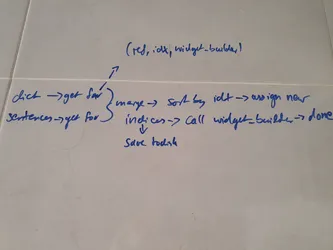 (ref, idx, widget_builder)
dict → get for
sentences → get for
merge → sort by idx → assign new
indices → call widget_builder → done
↓
save to disk